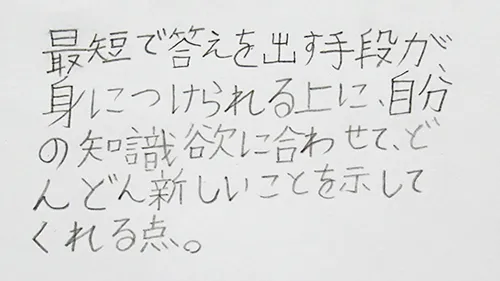 最短で答えを出す手段が、
身につけられる上に、自分
の知識欲に合わせて、ど
んどん新しいことを示して
くれる点。